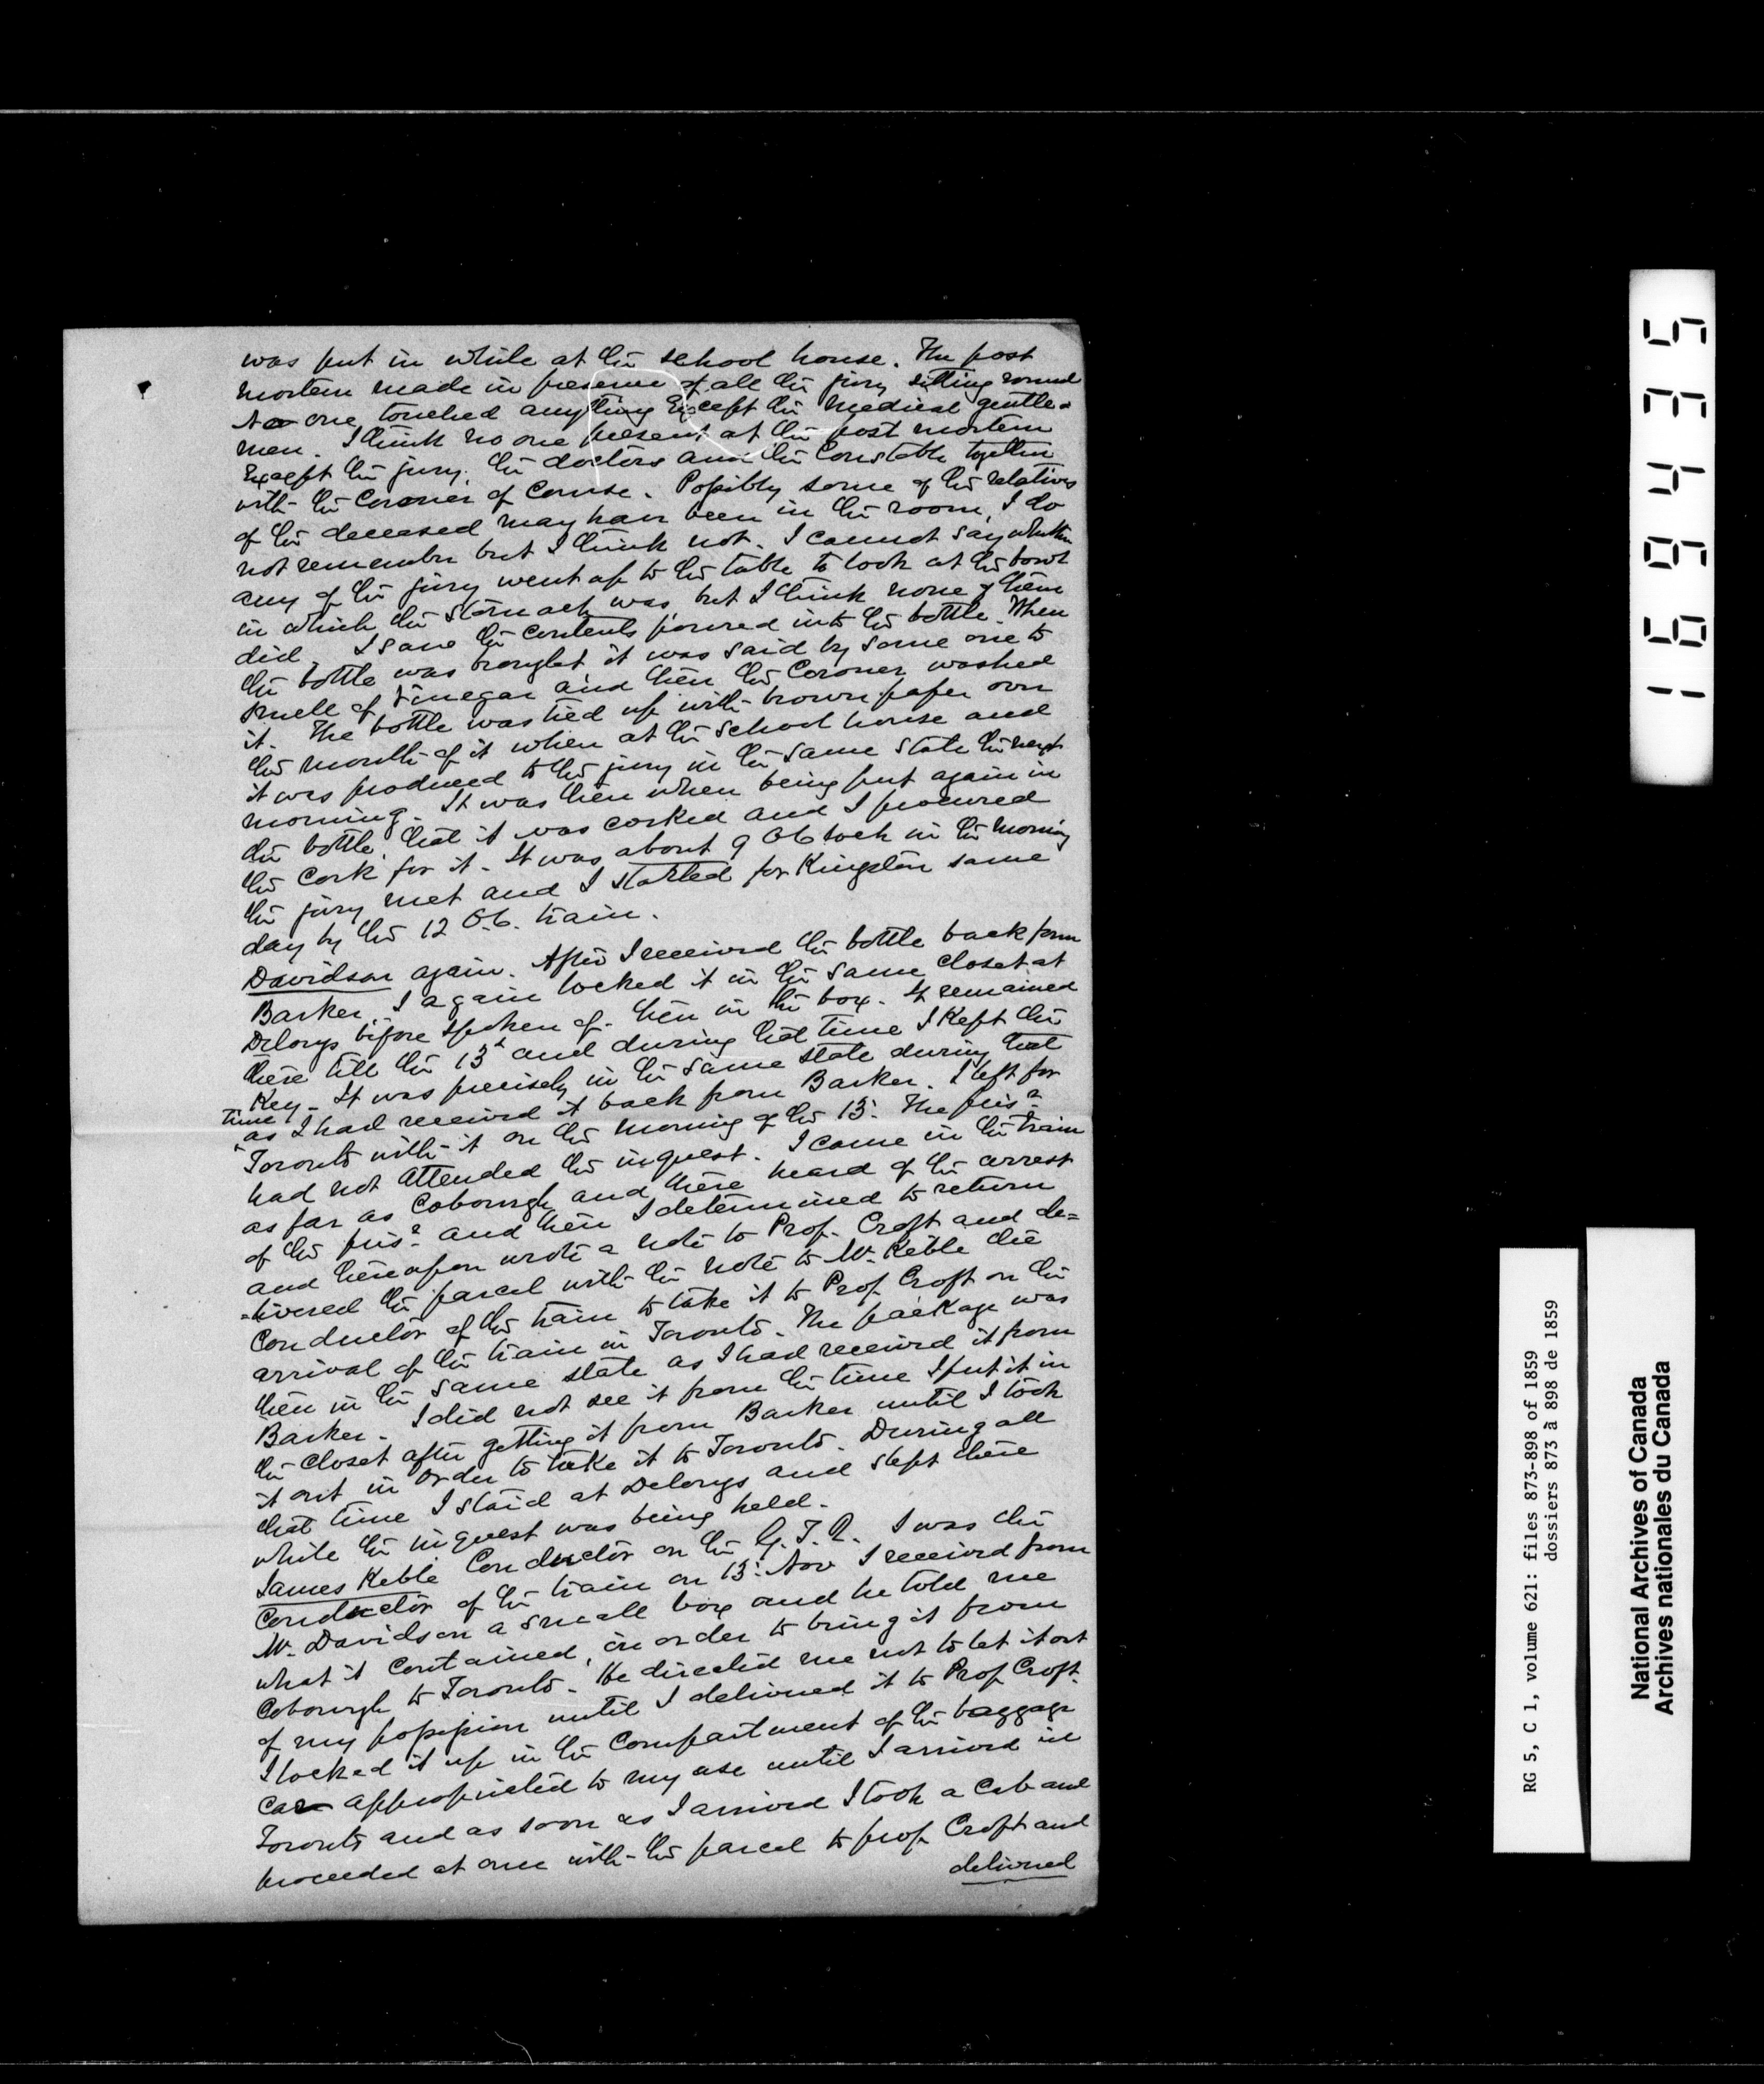 was put in while at the school house. The post
mortem made in presence of all the jury sitting round
No one touched anything Except the medical gentle=
men. I think no one present at the post mortem
Except the jury, the doctors and the Constable together
with the Coroner of Course. Possibly some of the relatives
of the deceased may have been in the room, I do
not remember but I think not. I cannot say whether
any of the jury went up to the table to look at the bowl
in which the stomach was, but I think none of them
did. I saw the contents poured into the bottle. When
the bottle was brought it was said by some one to
smell of Vinegar and then the Coroner washed
it. The bottle was tied up with brown paper over
the mouth of it when at the school house and
it was produced to the jury in the same state the next
morning. It was then when being put again in
the bottle that it was corked and I procured
the Cork for it. It was about 9 OClock in the morning
the jury met and I started for Kingston same
day by the 12 O.C. train.
Davidson again. After I received the bottle back from
Barker, I again locked it in the same closet at
Delongs before spoken of. then in the box. It remained
there till the 13th and during that time I Kept the
Key. It was precisely in the same state during that
time
as I had received it back from Barker. I left for
Toronto with it on the morning of the 13: The prisr
had not attended the inquest. I came in the train
as far as Cobourgh and there heard of the arrest
of the prisr and then I determined to return
and thereupon wrote a note to Prof. Croft and de=
=livered the parcel with the note to Mr. Keble the
Conductor of the train to take it to Prof Croft on the
arrival of the train in Toronto. The package was
then in the same state as I had received it from
Barker. I did not see it from the time I put it in
the closet after getting it from Barker until I took
it out in order to take it to Toronto. During all
that time I staid at Delongs and slept there
while the inquest was being held.
James Keble Conductor on the G. T. R. I was the
Conductor of the train on 13: Nov I received from
Mr. Davidson a small box and he told me
what it contained, in order to bring it from
Cobourgh to Toronto. He directed me not to let it out
of my possession until I delivered it to Prof Croft.
I locked it up in the Compartment of the baggage
Car appropriated to my use until I arrived in
Toronto and as soon as I arrived I took a Cab and
proceeded at once with the parcel to prof Croft and
delivered
169435
RG 5, C 1, volume 621: files 873-898 of 1859
dossiers 873 à 898 de 1859
National Archives of Canada
Archives nationales du Canada